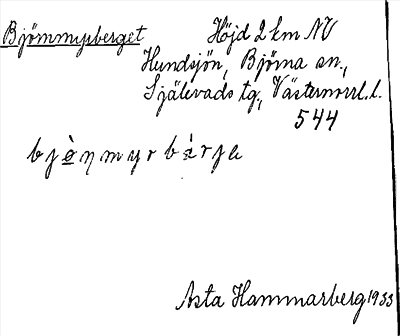 Björnmyrberget Höjd 2 km NV
Hundsjön, Björna sn.,
Själevads tg., Västernorrl. l.
544
bjø̀ṇmyrbæ̀rje
Asta Hammarberg 1933